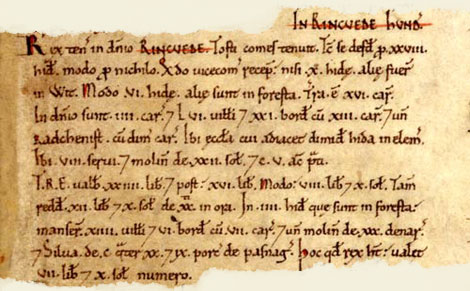 IN RINCVEDE HUND.
Rex ten in dnio RINCVEDE. Tosti comes tenuit. Tc se defd p xxviii.
hid. modo p nichilo. Qdo vicecom recep. nisi x. hidæ. aliæ fuer
in Wit. Modo vi. hidæ. aliæ sunt in foresta. Tra. e xvi. car.
In dnio sunt. iiii. car. 7 L vi. uilli 7 xxi. bord cu xiii. car. 7 un
Radchenist. cu dim car. Ibi æccla cui adiacet dimid hida in elem.
Ibi. viii. serui. 7 molin de. xxii. sol. 7 c. v. ac pti.
T.R.E. ualb xxiiii. lib. 7 post. xvi. lib. Modo. viii. lib. 7 x. sol. Tam
redd. xii. lib 7 x. sol de xx. in ora. In. iiii. hid que sunt in foresta.
manser. xiiii. uilli 7 vi. bord. cu vii. car. 7 un molin de. xxx. denar.
7 Silua de. c 7 qter xx. 7 ix. porc de pasnag. Hoc qd rex ht. ualet
vii. lib. 7 x. sol numero.